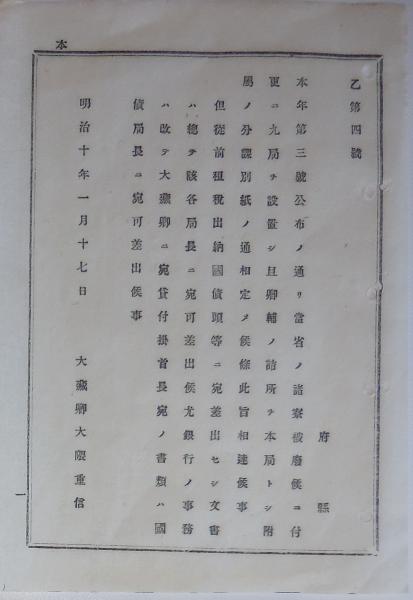 本
乙第四號
府縣
本年第三號公布ノ通リ當省ノ諸寮被廢候ニ付
更ニ九局ヲ設置シ且卿輔ノ詰所ヲ本局トシ附
屬ノ分課別紙ノ通相定メ候條此旨相達候事
但從前租稅出納國債頭等ニ宛差出セシ文書
ハ總テ該各局長ニ宛可差出候尤銀行ノ事務
ハ改テ大藏卿ニ宛貸付掛首長宛ノ書類ハ國
債局長ニ宛可差出候事
明治十年一月十七日 大藏卿大隈重信
一